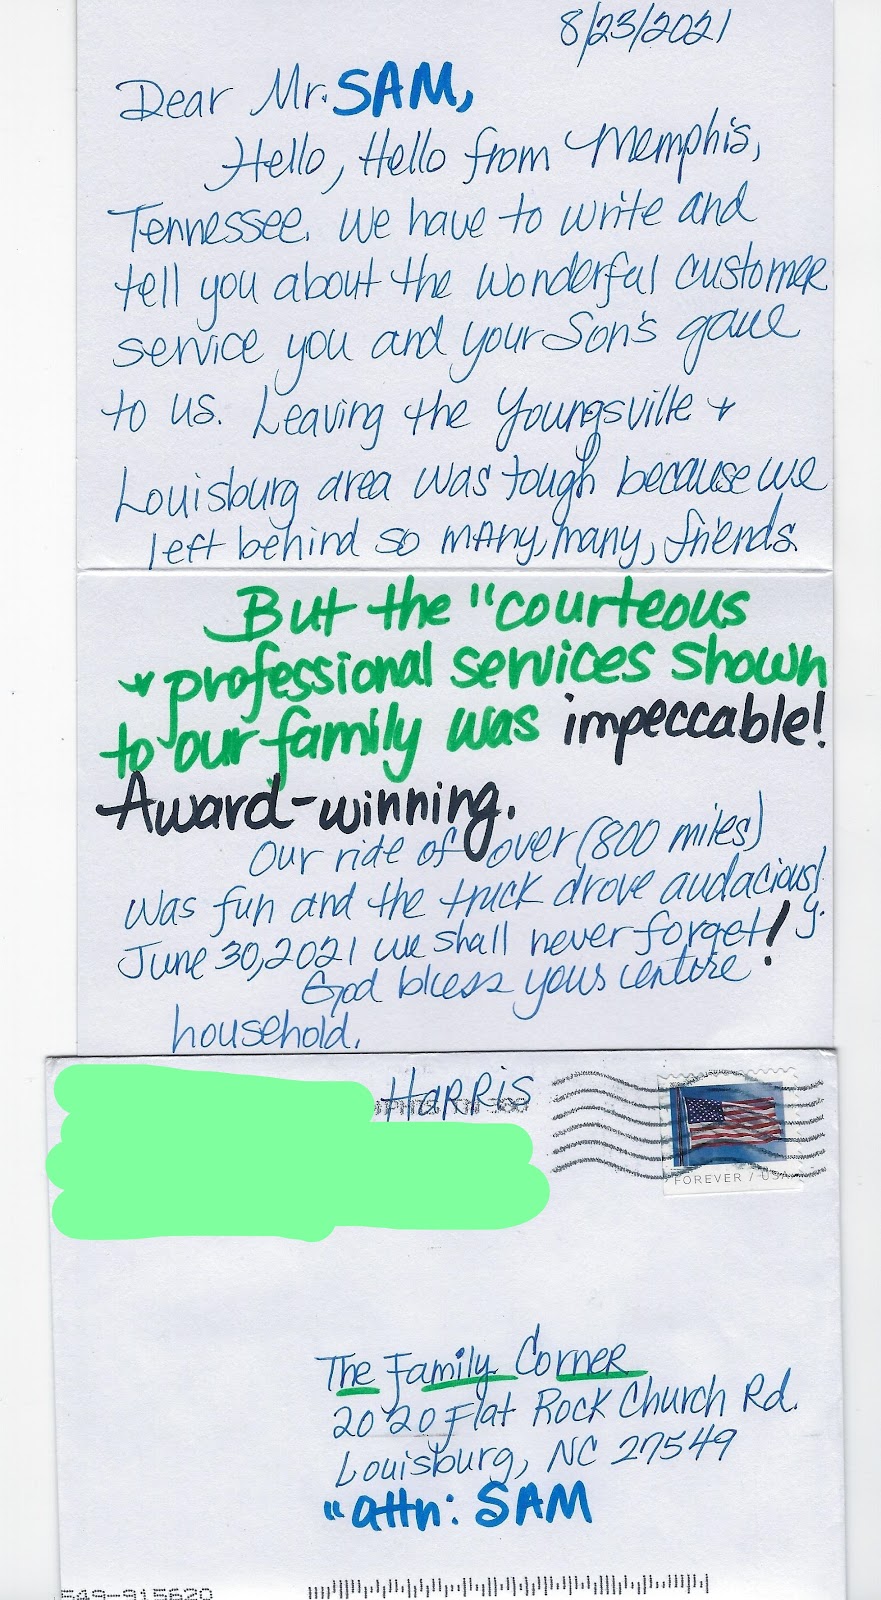 8/23/2021
Dear Mr. SAM,
Hello, Hello from Memphis,
Tennessee. We have to write and
tell you about the wonderful customer
service you and your Son's gave
to us. Leaving the Youngsville +
Louisburg area was tough because we
left behind so many, many, friends.
But the "courteous
+ professional services shown
to our family was impeccable!
Award-winning.
Our ride of over (800 miles)
was fun and the truck drove audaciously.
June 30, 2021 we shall never forget!
God bless your entire
household.
Harris
FOREVER / USA
The Family Corner
2020 Flat Rock Church Rd.
Louisburg, NC 27549
"attn: SAM
549-915620